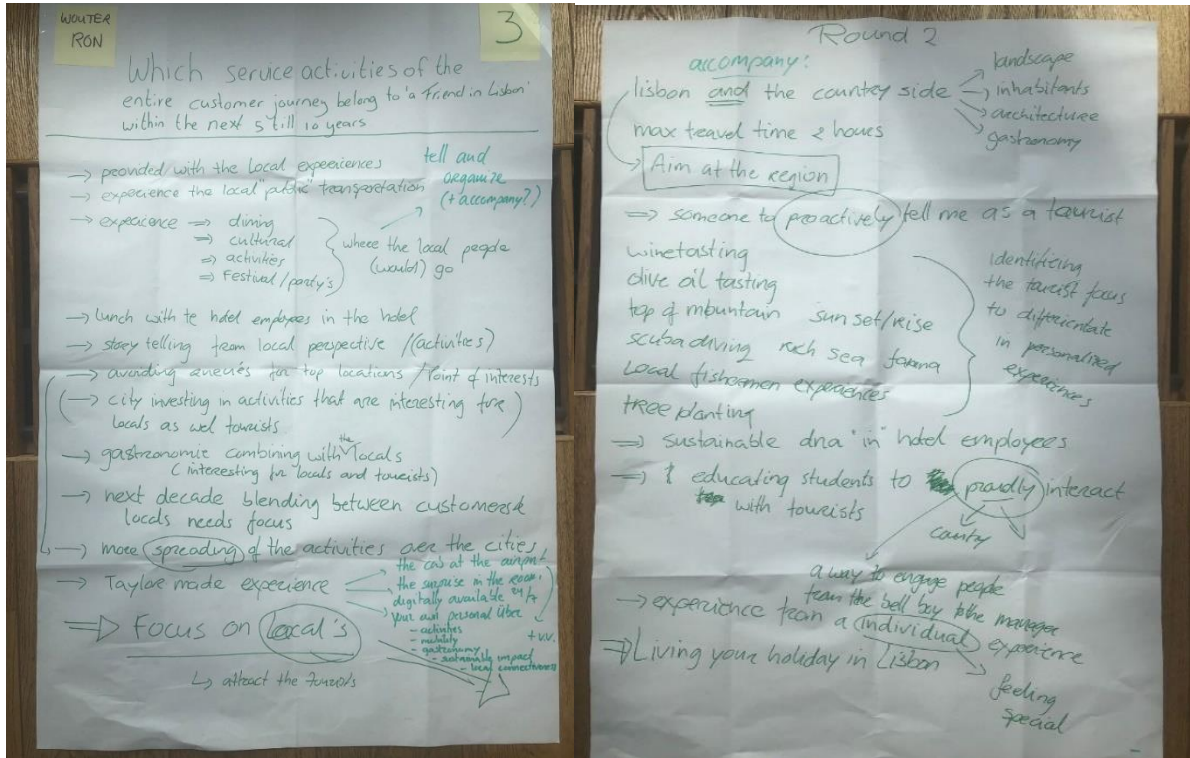 WOUTER
RON
3
Which service activities of the
entire customer journey belong to 'a Friend in Lisbon'
within the next 5 till 10 years
→ provided with the local experiences
→ experience the local public transportation
→ experience ⇒ dining
⇒ cultural
⇒ activities
⇒ Festival/party's
where the local people
(would) go
tell and
organize
(+ accompany?)
→ lunch with te hotel employees in the hotel
→ story telling from local perspective /(activities)
→ avoiding queues for top locations / Point of interests
(→ city investing in activities that are interesting for)
locals as wel tourists
→ gastronomic combining with the locals
(interesting for locals and tourists)
→ next decade blending between customers &
locals needs focus
→ more spreading of the activities over the cities
→ Taylor made experience
the car at the airport
the surprise in the room
digitally available 24/7
your own personal Uber
- activities
- mobility
- gastronomy
- sustainable impact
- local connectiveness
+ v.v.
⇒ Focus on Local's
↳ attract the
Round 2
accompany:
lisbon and the country side
→ landscape
→ inhabitants
→ architecture
→ gastronomy
max travel time 2 hours
Aim at the region
⇒ someone to proactively tell me as a tourist
winetasting
olive oil tasting
top of mountain sun set/rise
scuba diving rich sea
Local fishermen experiences
tree planting
the tourist focus
to
in personalized
experiences
⇒ sustainable dna "in" hotel employees
⇒ educating students to proudly interact
with tourists
a way to engage people
from the bell boy to the manager
→ experience from a individual experience
⇒ Living your holiday in Lisbon
feeling
special